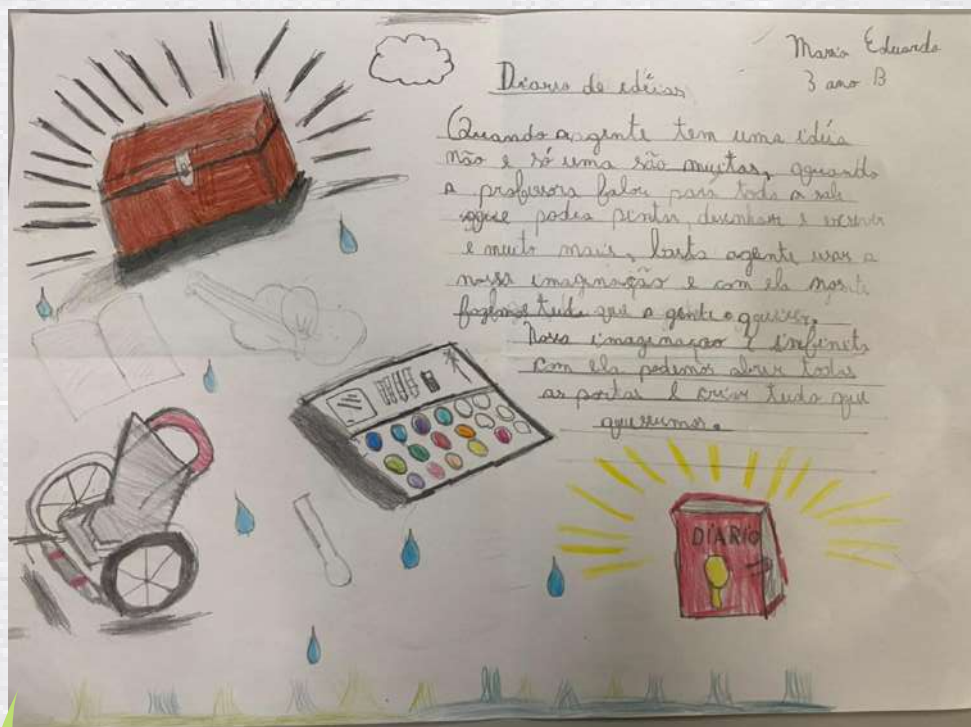 Maria Eduarda
3 ano B
Diario de idéias
Quando a gente tem uma idéia
não e só uma são muitas, quando
a professora falou para toda a sala
que podia pintar, desenhar e escrever
e muito mais, basta agente usar a
nossa imaginação e com ela
fazemos tudo que a gente quiser.
Nossa imaginação é infinita
com ela podemos abrir todas
as portas e criar tudo que
quisermos.
DIÁRIO